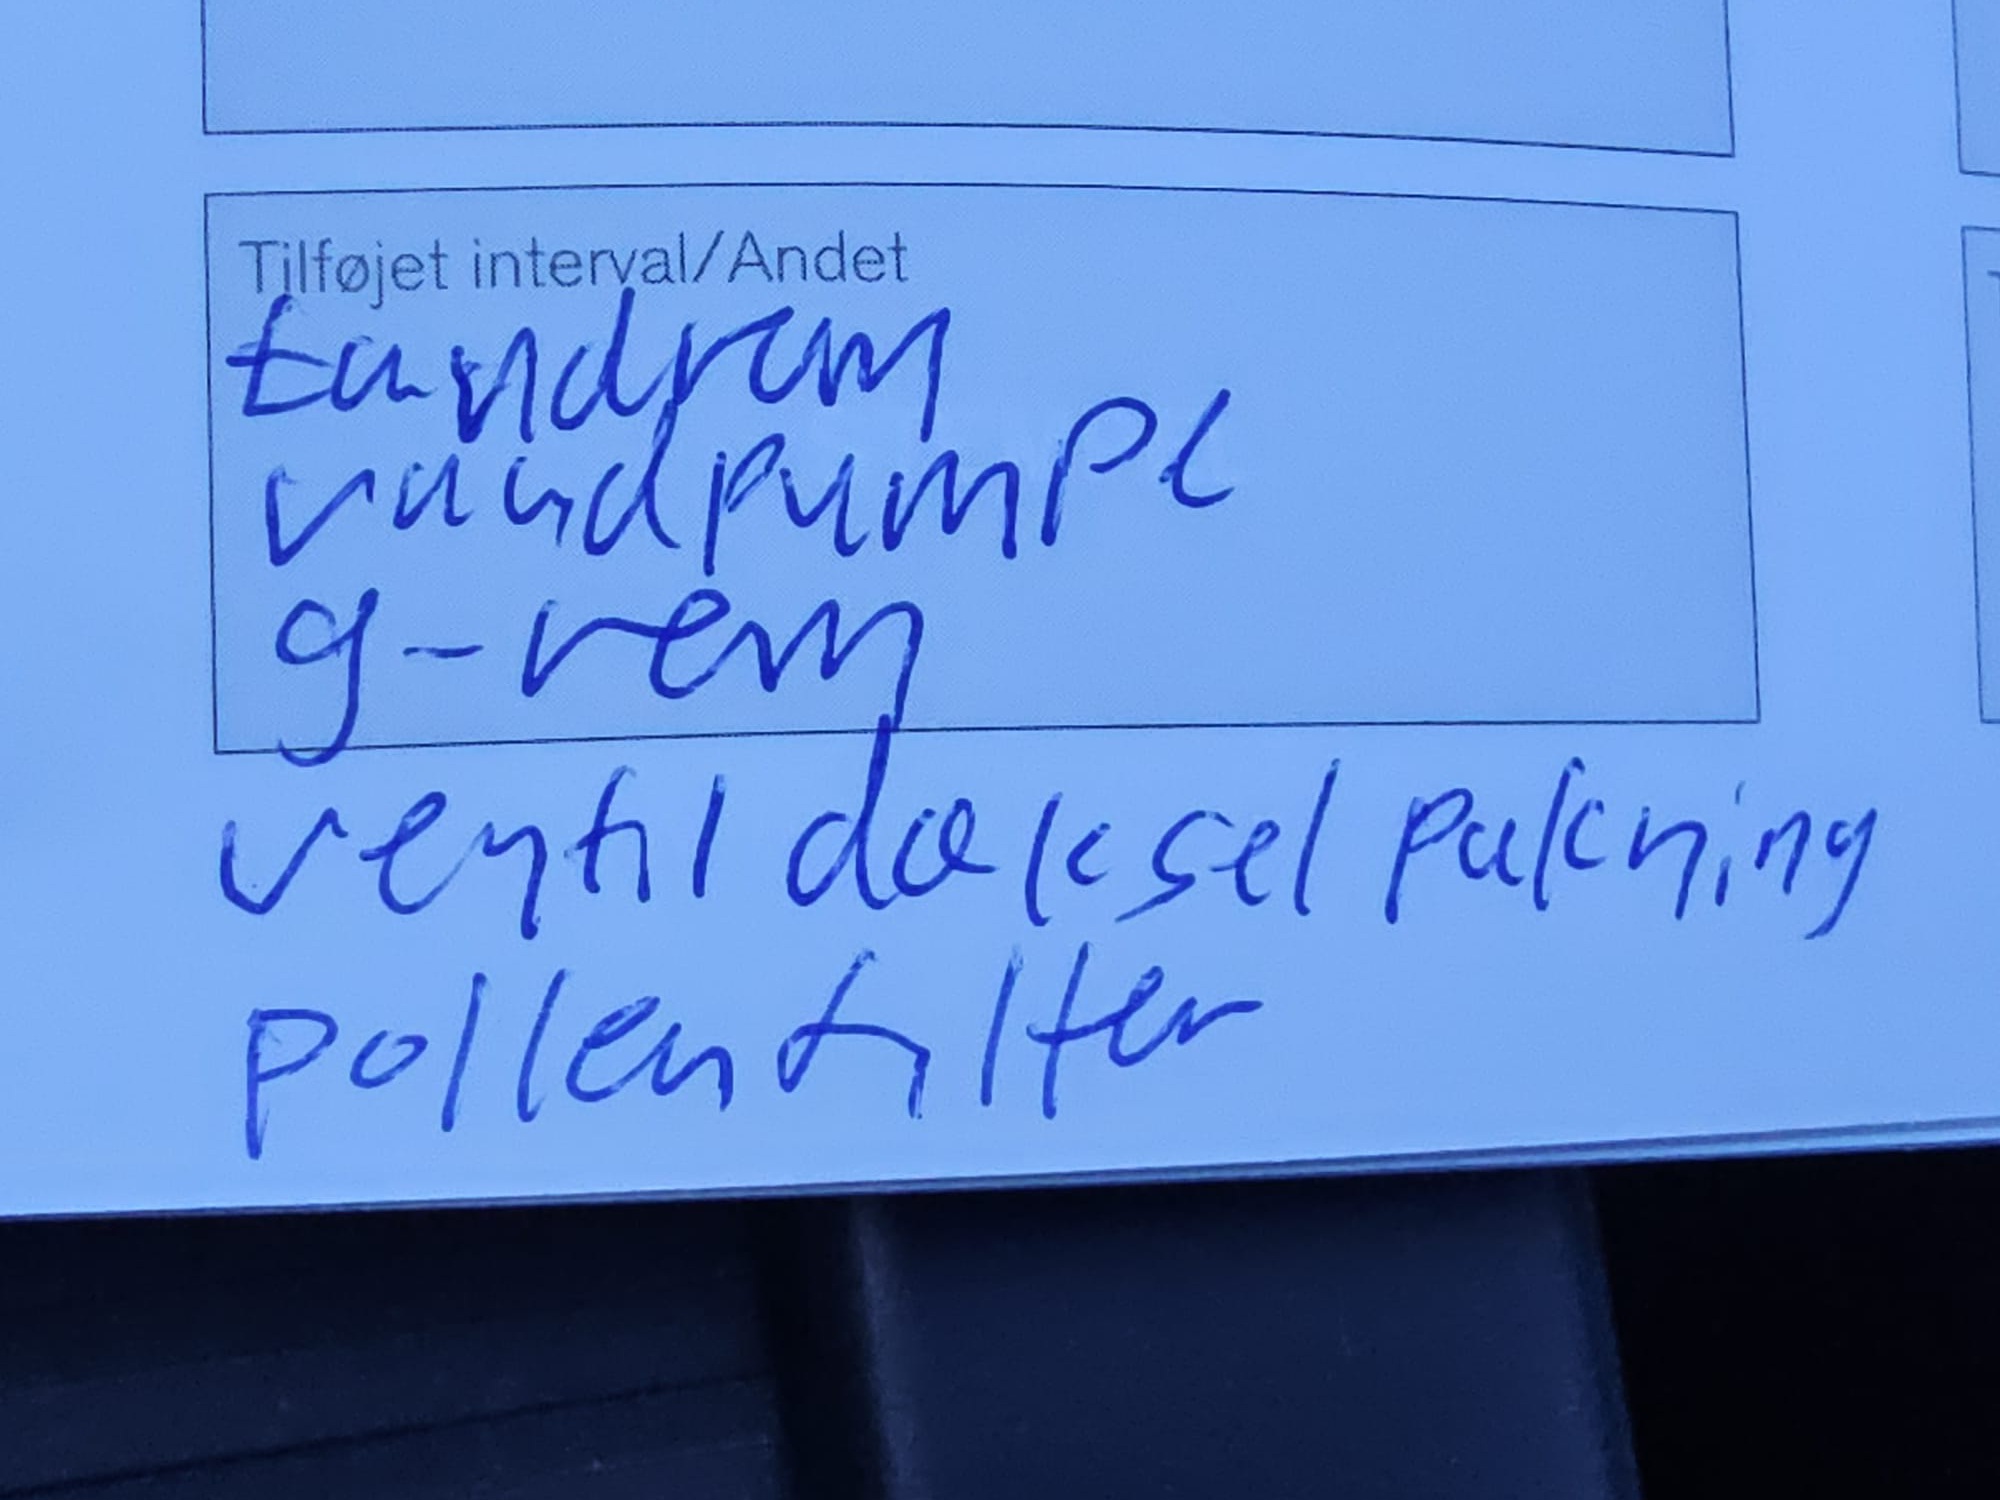 Tilføjet interval/Andet
tandrem
vandpumpe
g-rem
ventil dæksel pakning
pollenfilter